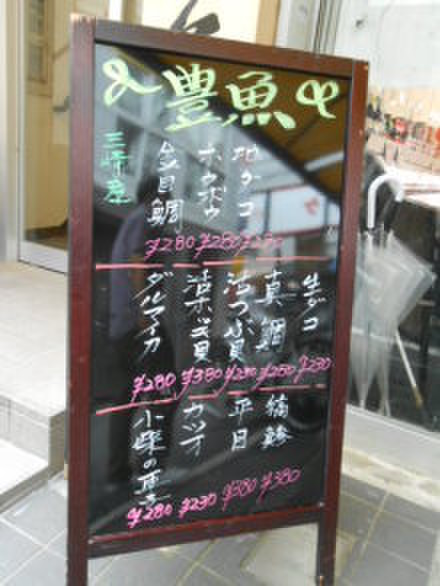 豊魚
地ダコ ¥280
ホウボウ ¥280
金目鯛 ¥280
三崎産
生ダコ ¥230
真鯛 ¥280
活つぶ貝 ¥230
活ホッキ貝 ¥380
ダルマイカ ¥280
縞鯵 ¥380
平目 ¥380
カツオ ¥230
小柴の ¥280